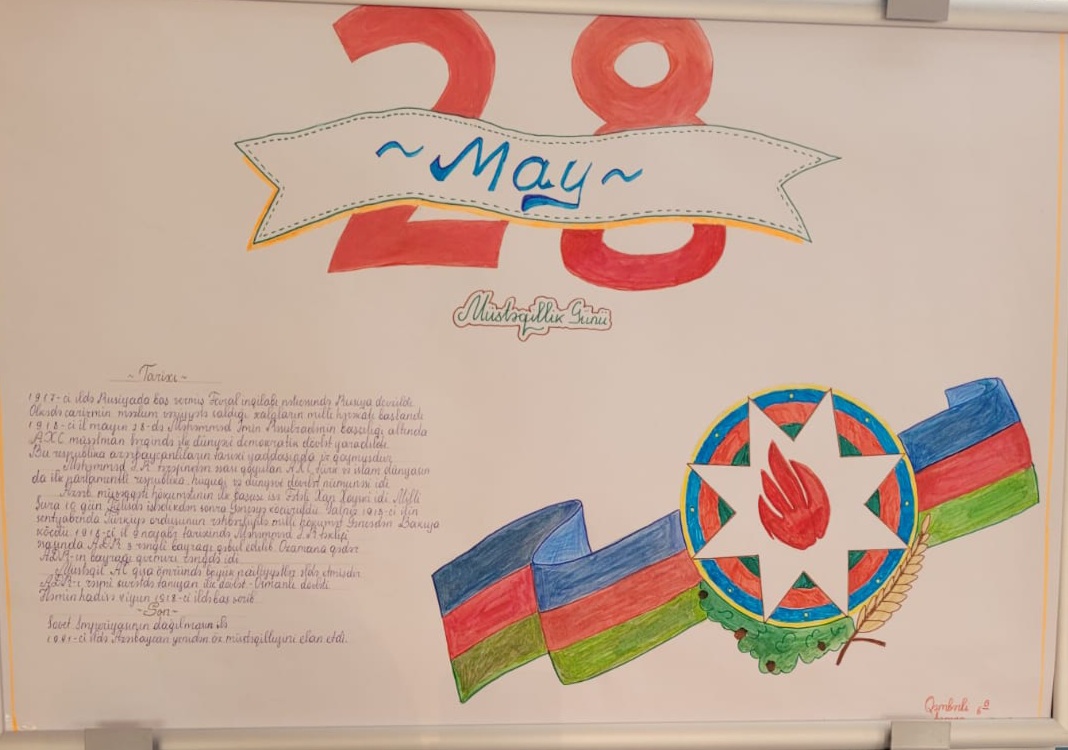 28
~May~
Müstəqillik Günü
~Tarixi~
1917-ci ildə Rusiyada baş vermiş Fevral inqilabı nəticəsində Rusiya devrildi.
Ölkədə çarizmin məzlum vəziyyətə saldığı xalqların milli hərəkatı başlandı
1918-ci il mayın 28-də Məhəmməd Əmin Rəsulzadənin başçılığı altında
AXC müsəlman şərqində ilk dünyəvi demokratik dövlət yaradıldı.
Bu respublika azərbaycanlıların tarixi yaddaşında
Məhəmməd Ə.R tərəfindən əsası qoyulan AXC türk və islam dünyasın
da ilk parlamentli respublika, hüquqi və dünyəvi dövlət nümunəsi idi
müvəqqəti hökumətinin ilk başçısı isə Fətəli Xan Xoyski idi Milli
Şura 10 gün Tiflisdə işlədikdən sonra Gəncəyə köçürüldü. Yalnız 1918-ci ilin
sentyabrında Türkiyə ordusunun rəhbərliyilə milli hökumət Gəncədən Bakıya
köçdü. 1918-ci il 9 noyabr tarixində Məhəmməd Ə.R təklifi
əsasında ADR 3 rəngli bayrağı qəbul edilib. O zamana qədər
ADR-in bayrağı qırmızı rəngdə idi
Müstəqil AC qısa ömründə böyük nailiyyətlər əldə etmişdir
ADR-i rəsmi surətdə tanıyan ilk dövlət-Osmanlı dövləti
Həmin hadisə iyun 1918-ci ildə baş verib
~Son~
Sovet İmperiyasının dağılması ilə
1991-ci ildə Azərbaycan yenidən öz müstəqilliyini elan etdi.
Qəmbərli 6